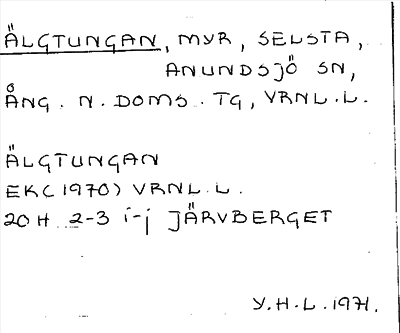 ÄLGTUNGAN, MYR, SELSTA,
ANUNDSJÖ SN,
ÅNG. N. DOMS. TG, VRNL.L.
ÄLGTUNGAN
EK(1970) VRNL.L.
20H 2-3 i-j JÄRVBERGET
Y.H.L. 1971.